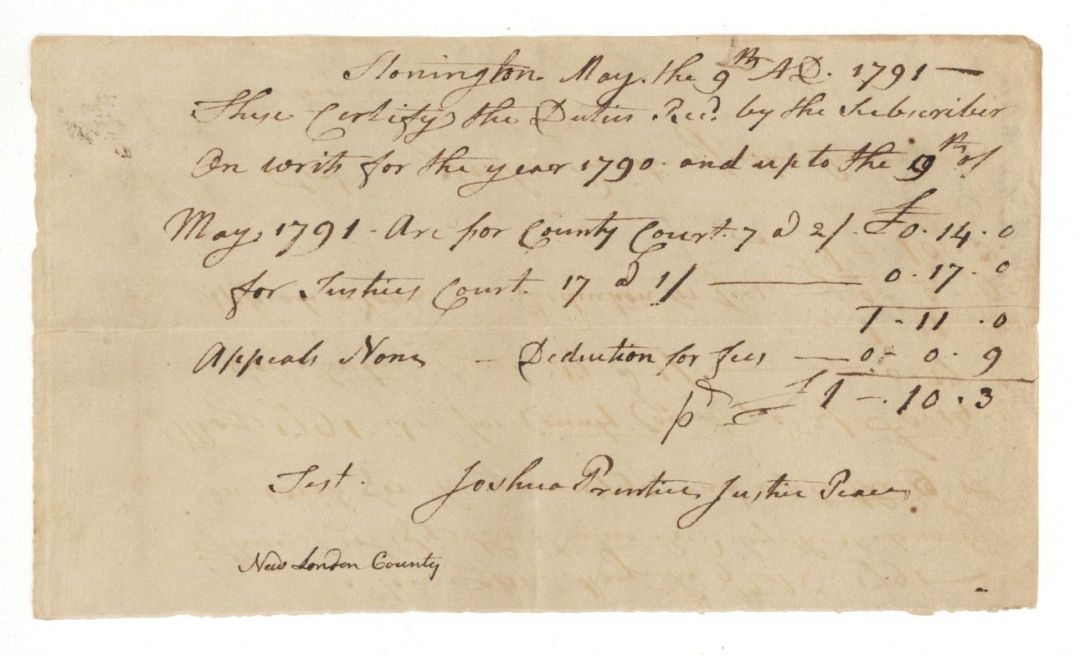 Stonington May the 9th AD. 1791 —
These Certify the Duties Recd. by the Subscriber
On writs for the year 1790 - and up to the 9th of
May 1791 - Are for County Court. 7 @ 2/. £0. 14. 0
for Justices Court. 17 @ 1/ —— 0. 17. 0
1 - 11 . 0
Appeals None — Deduction for fees — 0 - 0. 9
pd £1 - . 10 . 3
Test. Joshua Prentice Justice Peace
New London County